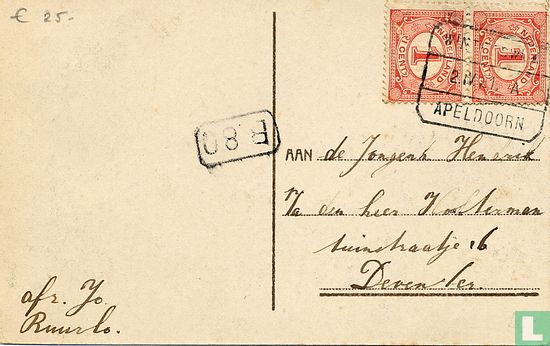 € 25-
NEDERLAND
1
CENT
NEDERLAND
1
CENT
2.IV.21. A
APELDOORN
R 80
AAN de Jongenh Hendrik
t/a den heer Kosterman
tuinstraatje 16
Deventer.
afz. Jo.
Ruurlo.
L